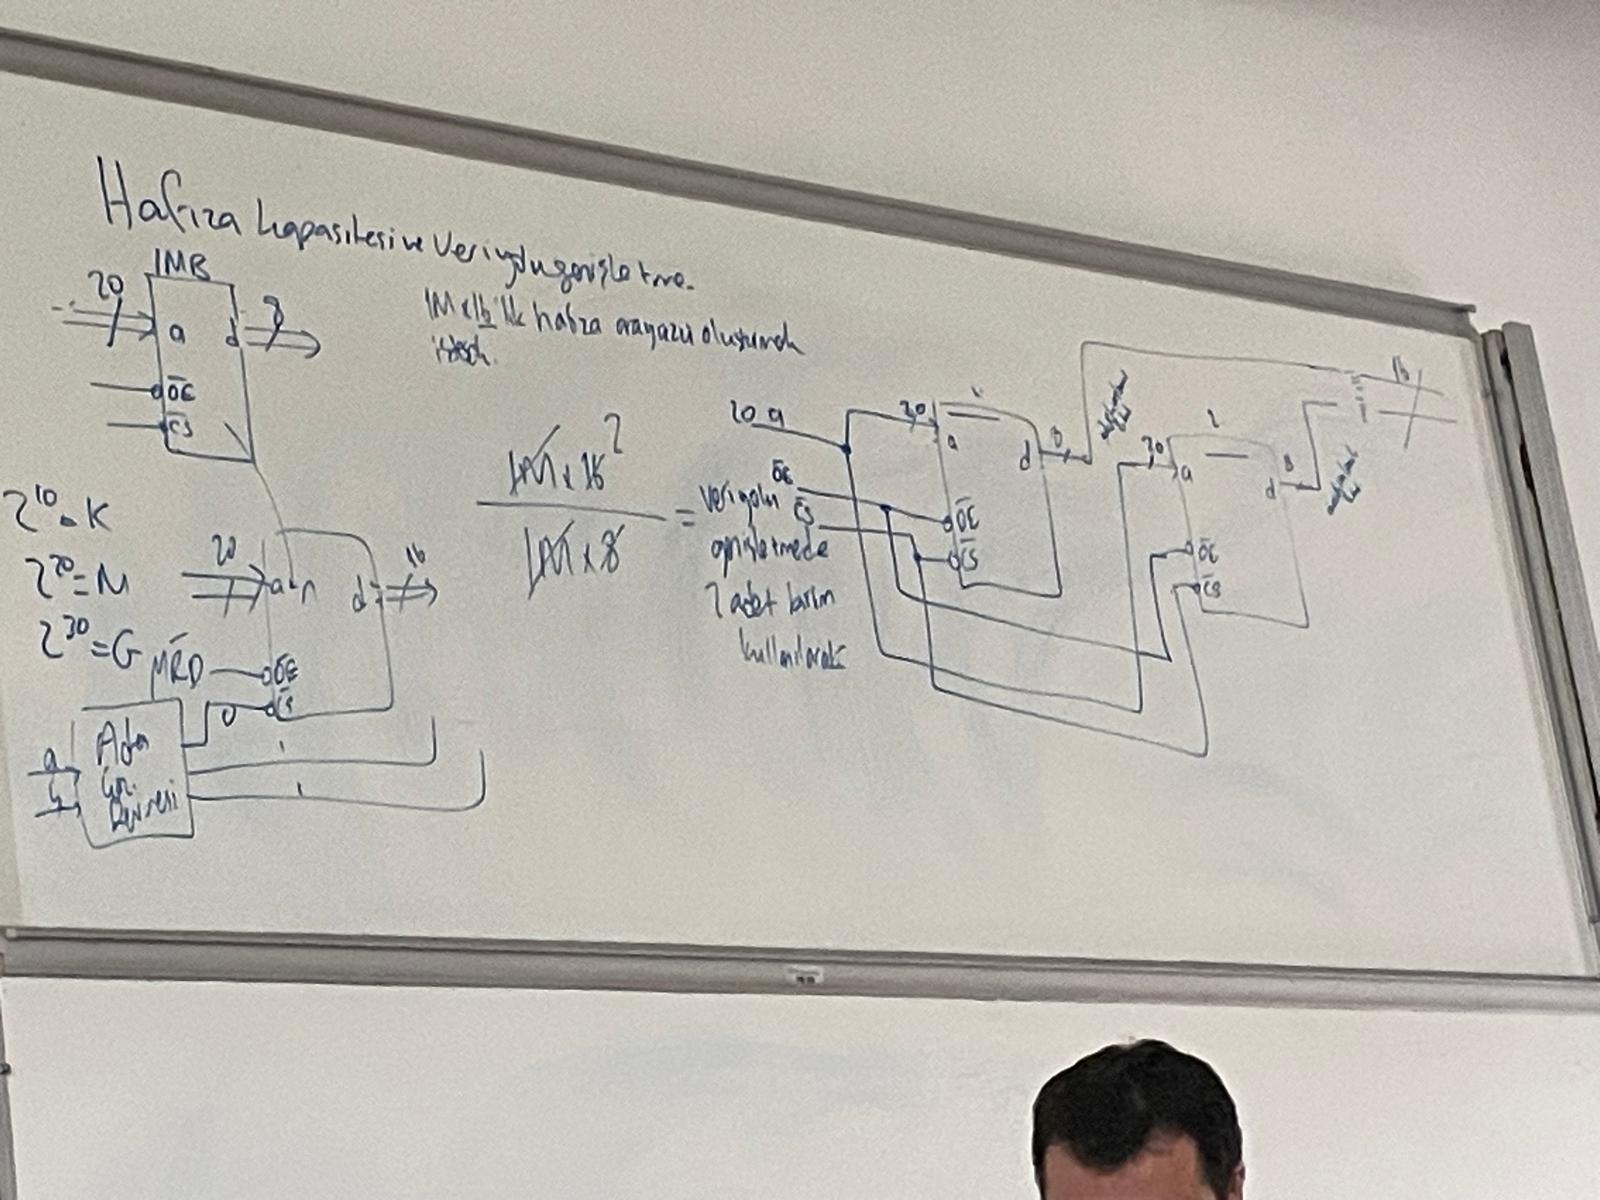 Hafıza kapasitesi ve veriyolu genişletme.
1MB
20
8
a
d
O̅E̅
C̅S̅
1Mx16 lık hafıza arayüzü oluşturmak
istesek.
2¹⁰=K
2²⁰=M
2³⁰=G
20
a
d
16
M̅R̅D̅
O̅E̅
C̅S̅
0
1
1
Adr
Çöz.
Devresi
1M x 16 2
1M x 8
=
veriyolu
genişletmede
2 adet
kullanılarak
20 a
O̅E̅
C̅S̅
20
a
d
8
O̅E̅
C̅S̅
20
2
a
d
8
O̅E̅
C̅S̅
16